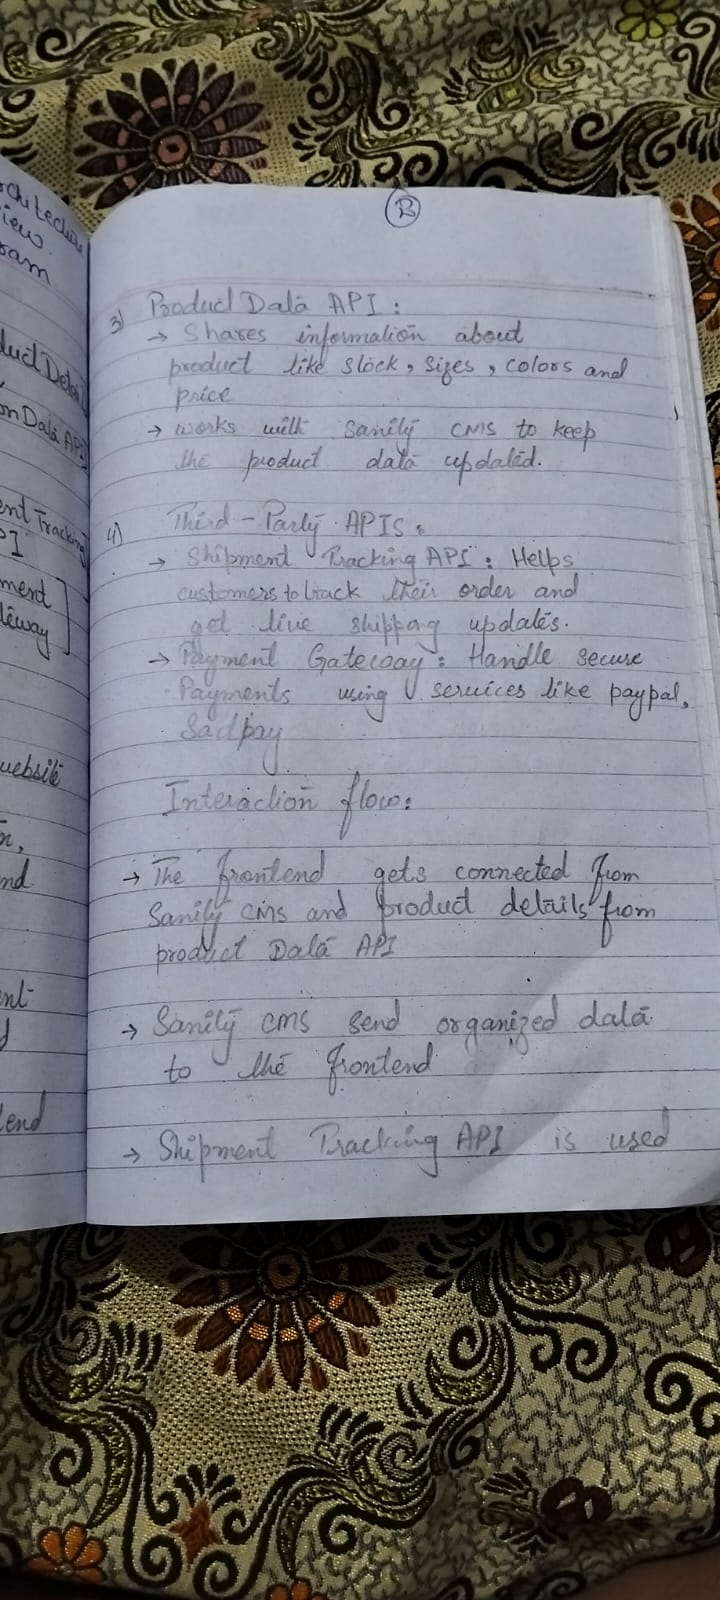 chitectu
view
ram
duct Detai
on Data API
ent Tracking
PI
ment
teway
website
n,
nd
ent
d
tend
B
3) Product Data API :
→ Shares information about
product like stock, sizes, colors and
price
→ works with sanity CMS to keep
the product data updated.
4) Third - Party APIS :
→ Shipment Tracking API : Helps
customers to track their order and
get live shippng updates.
→ Payment Gateway : Handle secure
Payments using services like paypal,
Sadpay
Interaction flow :
→ The frontend gets connected from
Sanity cms and product details from
product Data API
→ Sanity cms send organized data
to the frontend
→ Shipment Tracking API is used